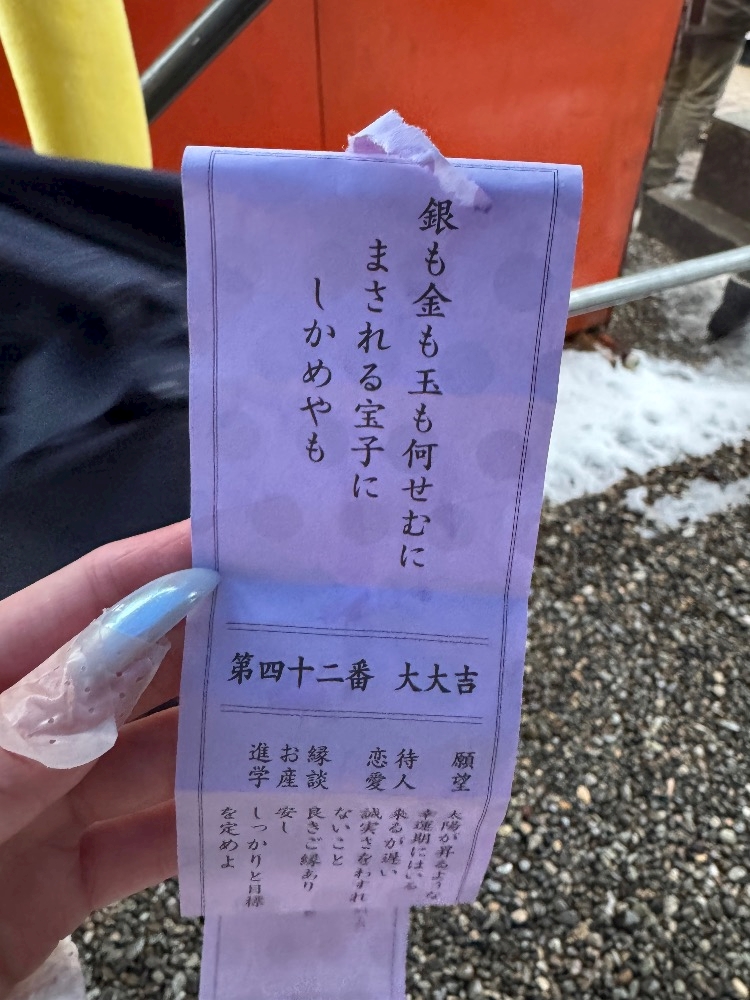 銀も金も玉も何せむに
まされる宝子に
しかめやも
第四十二番 大大吉
願望 太陽が昇るような
幸運期にはいる
待人 来るが遅い
恋愛 誠実さをわすれ
ないこと
縁談 良きご縁あり
お産 安し
進学 しっかりと目標
を定めよ